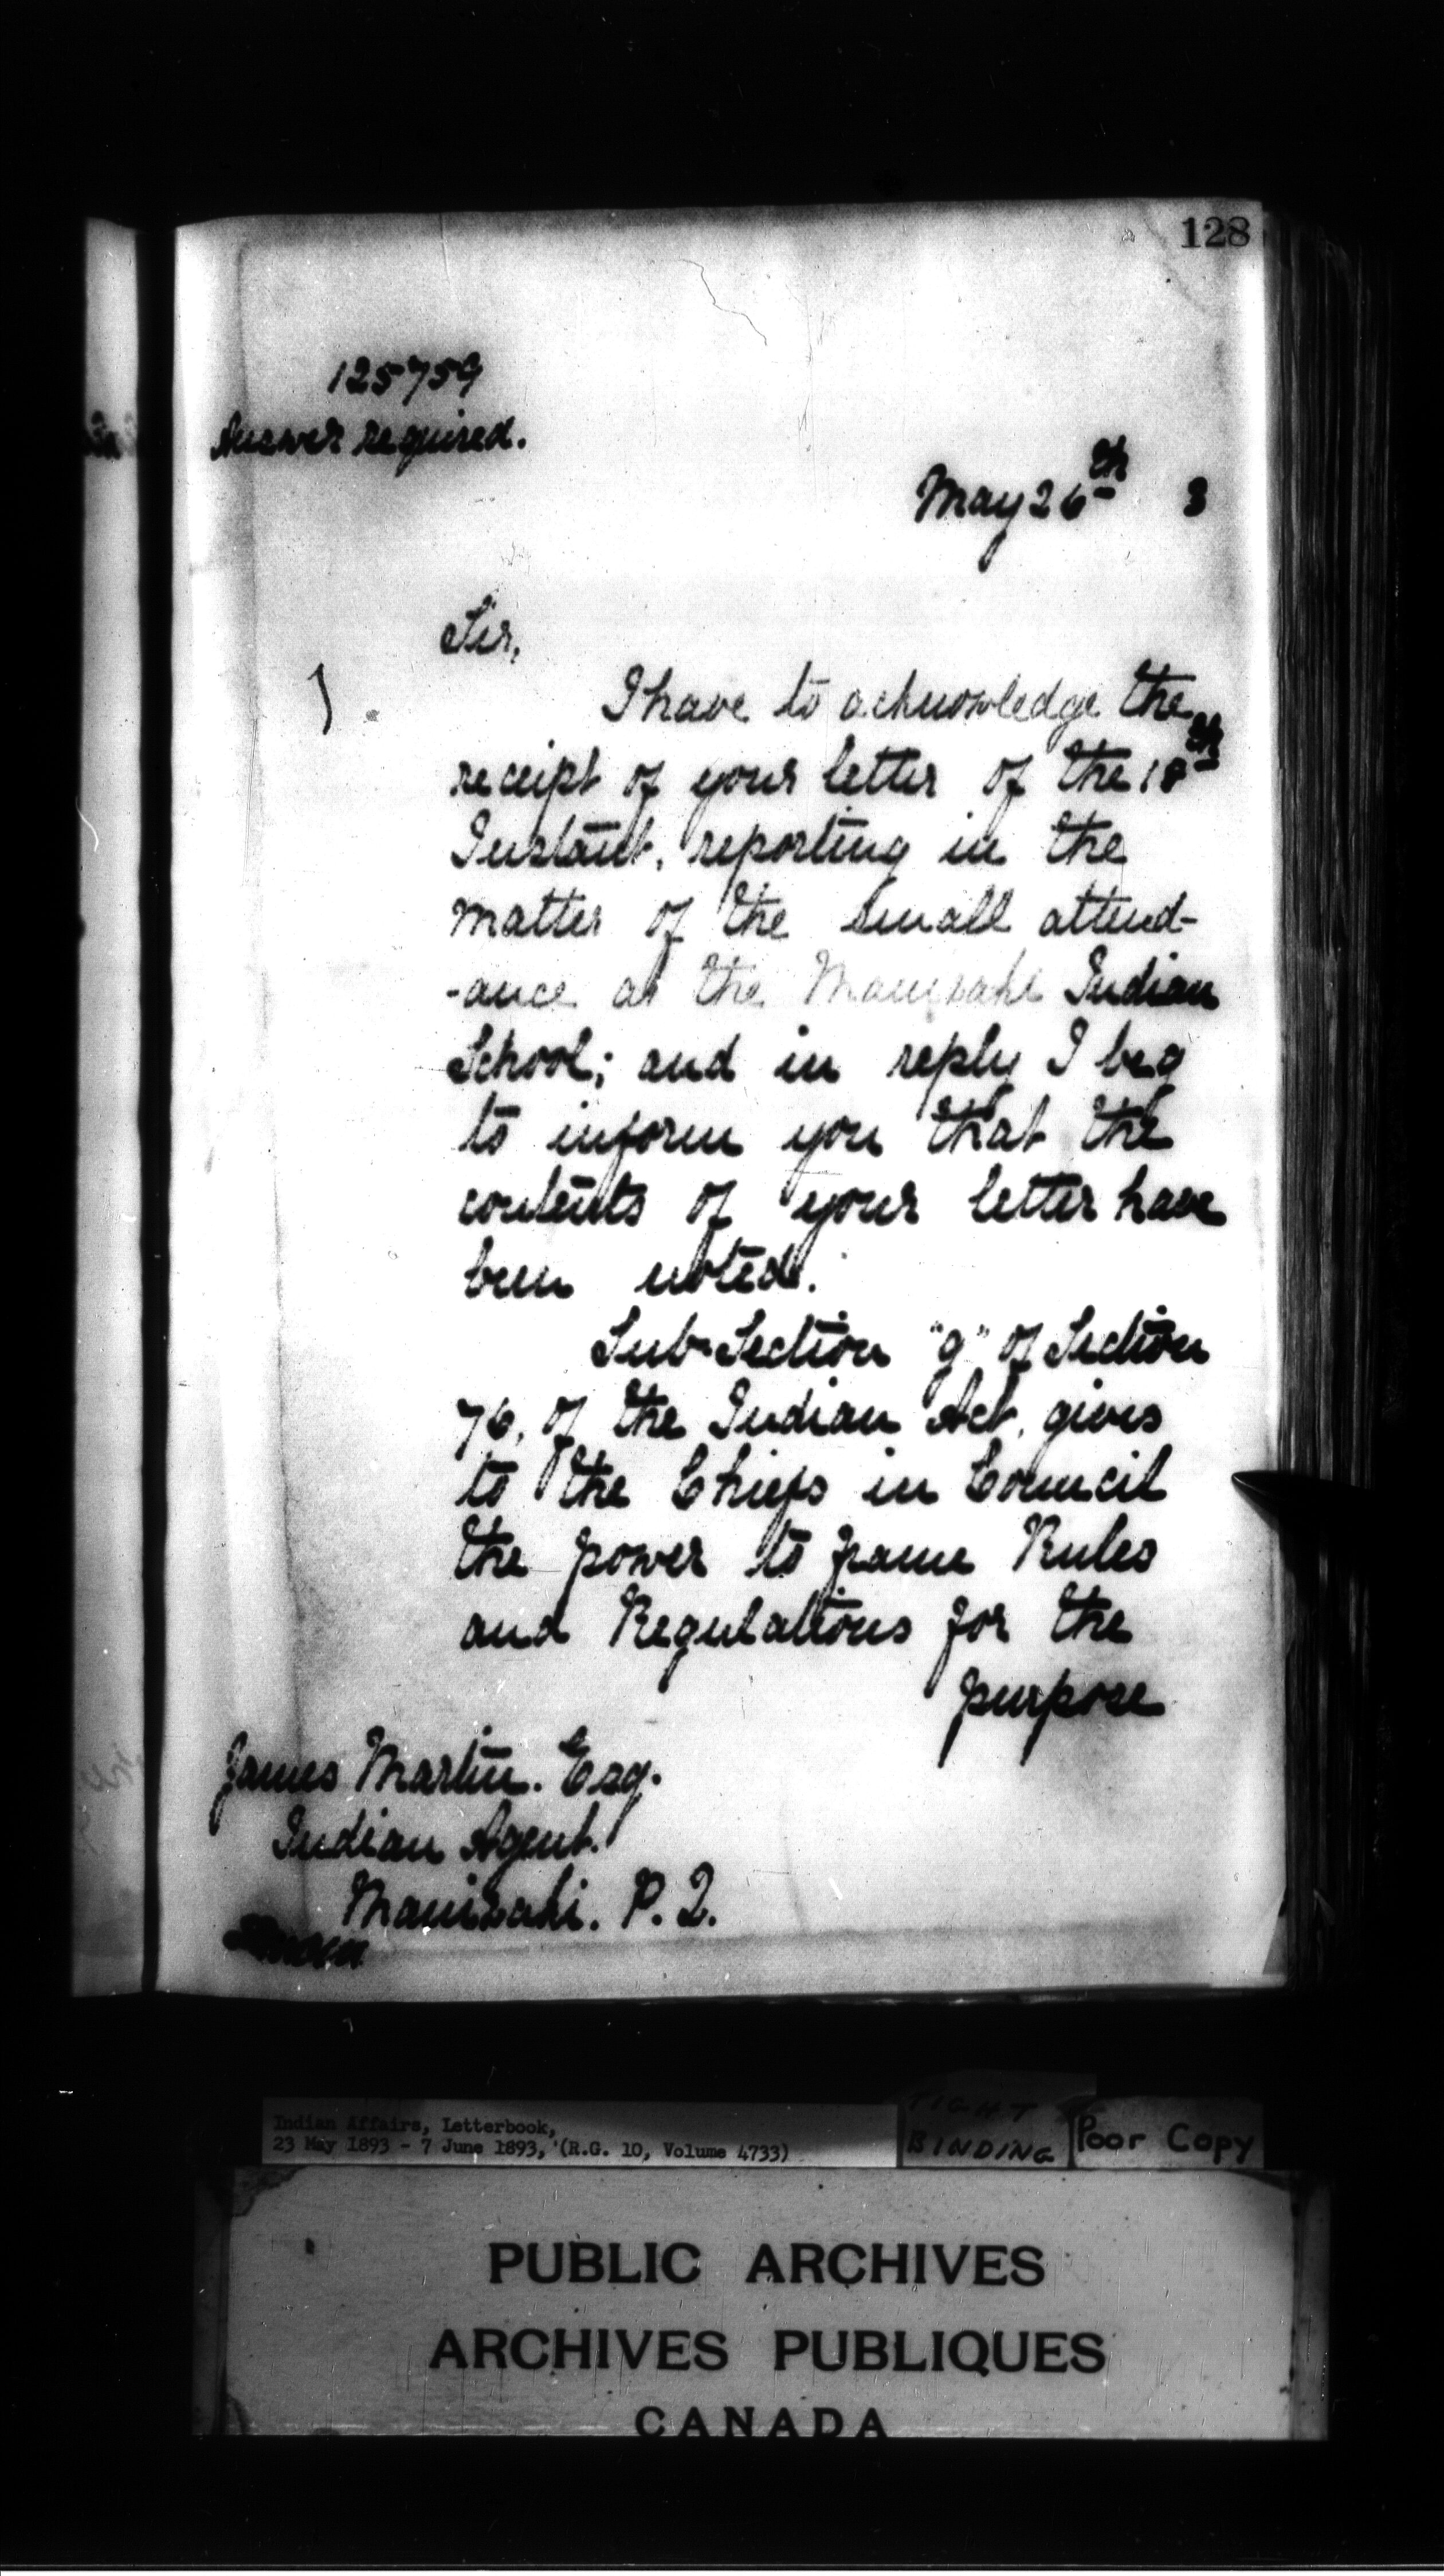 128
125759
Answer required.
May 26th 3
Sir,
I have to acknowledge the
receipt of your letter of the 18th
Instant, reporting in the
matter of the small attend-
-ance at the Maniwaki Indian
School; and in reply I beg
to inform you that the
contents of your letter have
been noted.
Sub-Section "g" of Section
76, of the Indian Act, gives
to the Chiefs in Council
the power to frame Rules
and Regulations for the
purpose
James Martin. Esq.
Indian Agent.
Maniwaki. P. Q.
Indian Affairs, Letterbook,
23 May 1893 - 7 June 1893, (R.G. 10, Volume 4733)
TIGHT
BINDING
Poor Copy
PUBLIC ARCHIVES
ARCHIVES PUBLIQUES
CANADA